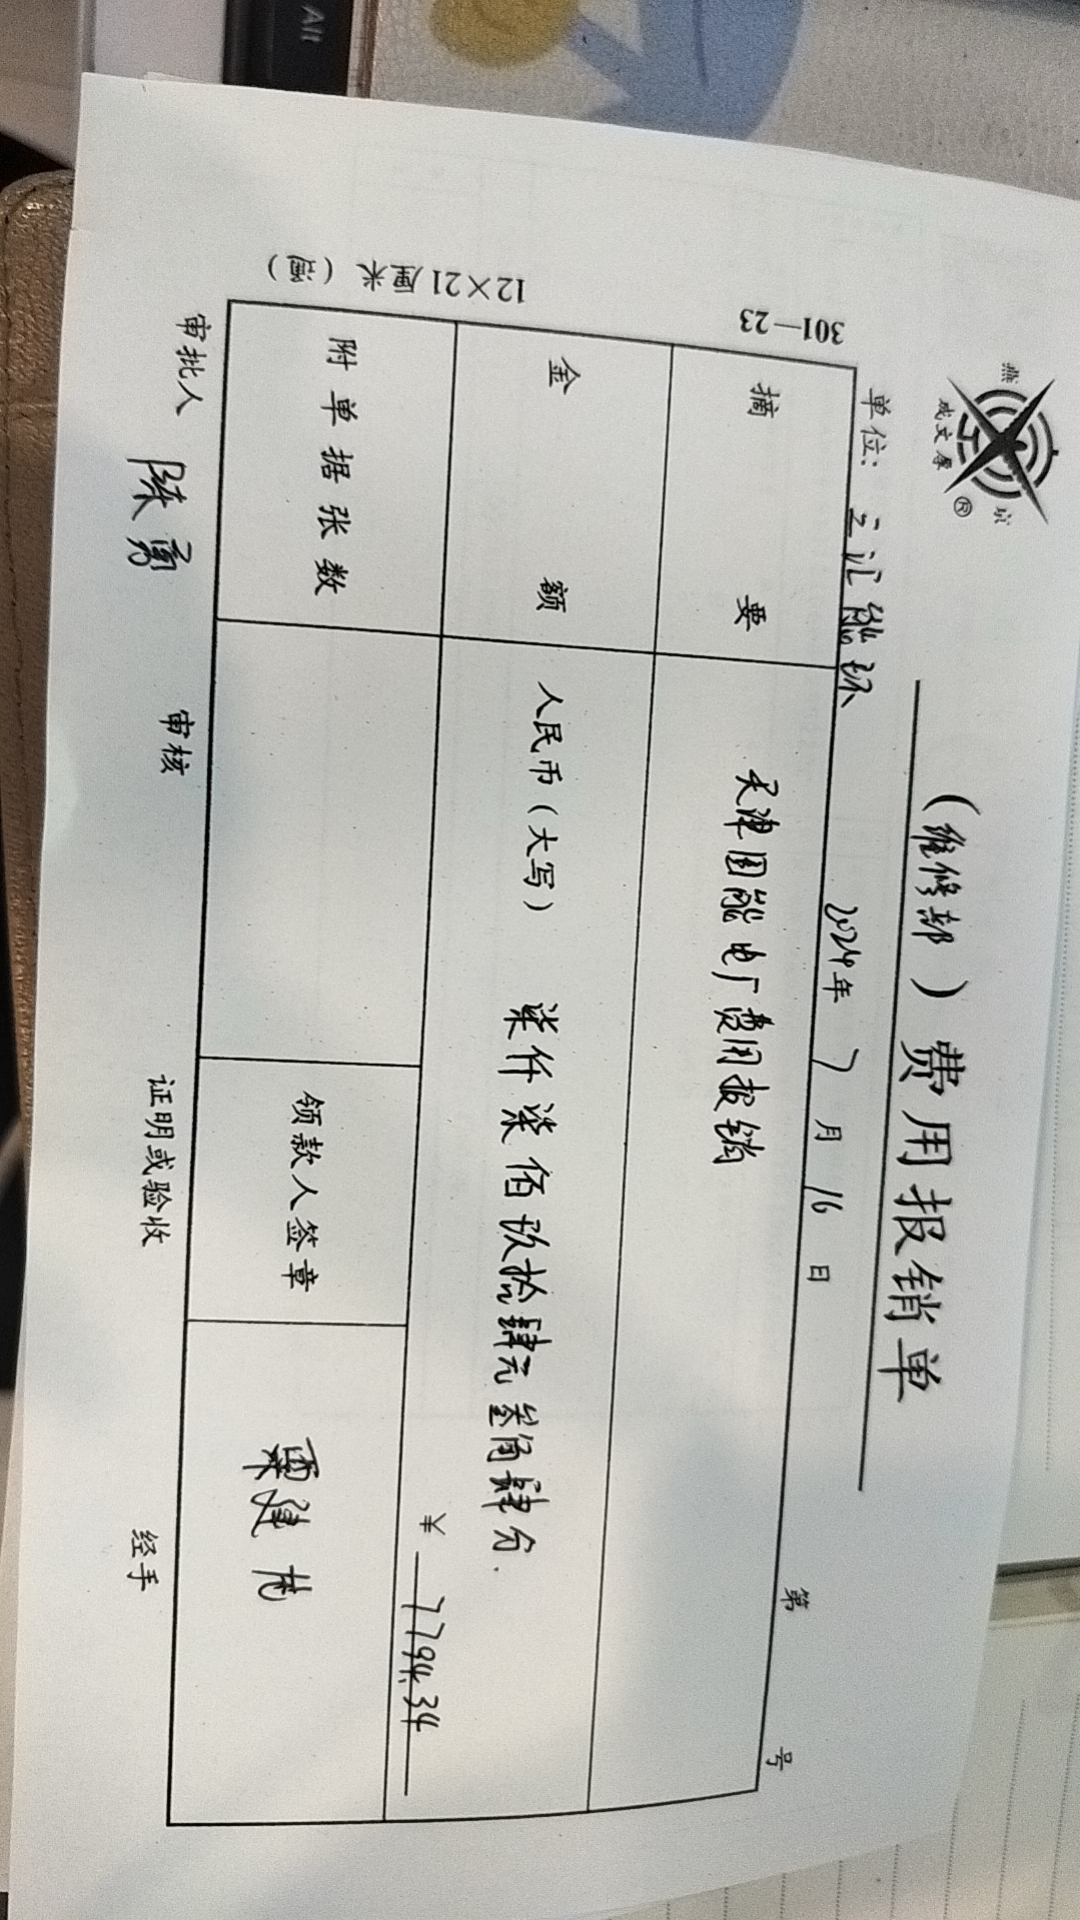 Alt
燕 京
成文厚
®
(维修部)费用报销单
单位: 三汇能环 2024年 7 月 16 日 第 号
301—23
12×21厘米 (通)
摘要 天津国能电厂费用报销
金额 人民币(大写) 柒仟柒佰玖拾肆元叁角肆分.
¥ 7794.34
附单据张数 领款人签章 栗建
审批人 陈勇 审核 证明或验收 经手